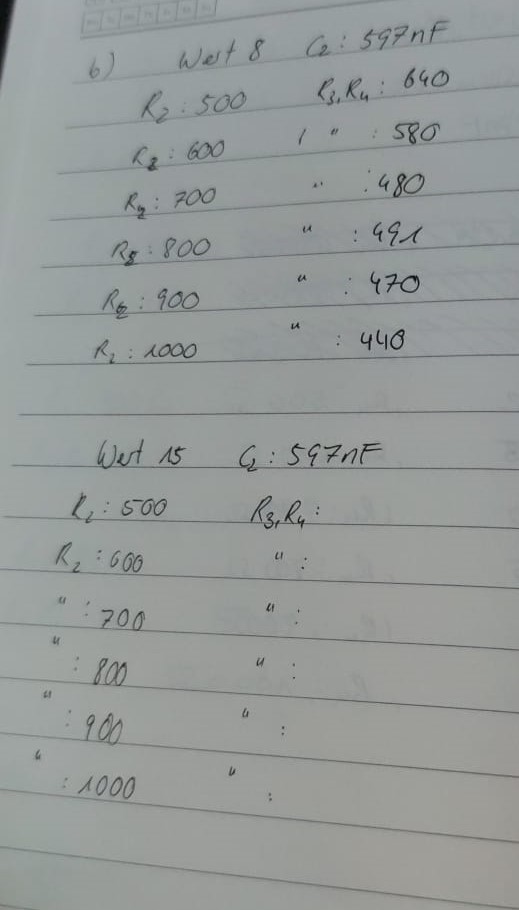 b) Wert 8 C2: 597nF
R2: 500 R3,R4: 640
R2: 600 " : 580
R2: 700 " : 480
R2: 800 " : 491
R2: 900 " : 470
R2: 1000 " : 440
Wert 15 C2: 597nF
R2: 500 R3,R4:
R2: 600 " :
" : 700 " :
" : 800 " :
" : 900 " :
" : 1000 " :